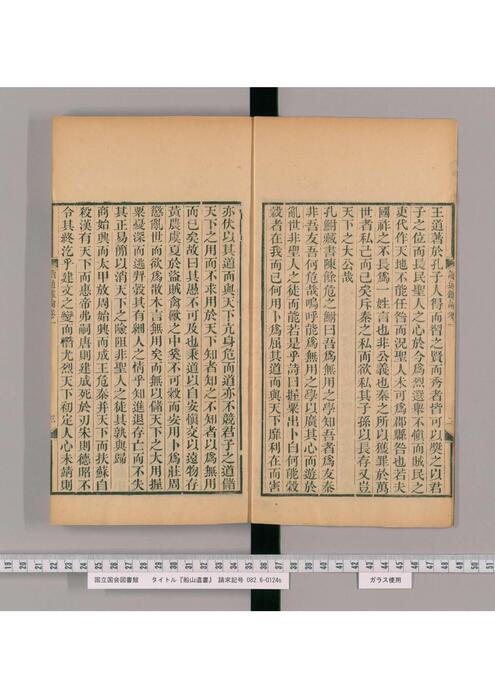 王道著於孔子人得而習之賢而秀者皆可以獎之以君
子之位而長民聖人之心於今爲烈選舉不愼而賊民之
吏代作天地不能任咎而況聖人未可爲郡縣咎也若夫
國祚之不長爲一姓言也非公義也秦之所以獲罪於萬
世者私己而已矣斥秦之私而欲私其子孫以長存又豈
天下之大公哉
孔鮒藏書陳餘危之鮒曰吾爲無用之學知吾者爲友秦
非吾友吾何危哉嗚呼能爲無用之學以廣其心而遊於
亂世非聖人之徒而能若是乎詩曰握粟出卜自何能穀
穀者在我而已何用卜爲屈其道而與天下靡利在而害
亦伏以其道而與天下亢身危而道亦不競君子之道儲
天下之用而不求用於天下知者知之不知者以爲無用
而已矣故曰其愚不可及也秉道以自安愼交以遠物存
黃農虞夏於盜賊禽獸之中奚不可穀而安用卜爲莊周
懲亂世而欲爲散木言無用矣而無以儲天下之大用握
粟憂深而逃羿彀其有細人之情乎知進退存亡而不失
其正易簡以消天下之險阻非聖人之徒其孰與歸
商始興而太甲放周始興而成王危秦并天下而扶蘇自
殺漢有天下而惠帝弗嗣唐則建成死於刃宋則德昭不
令其終汔乎建文之變而憯尤烈天下初定人心未靖則
國立国会図書館 タイトル『船山遺書』 請求記号 082.6-0124s
ガラス使用